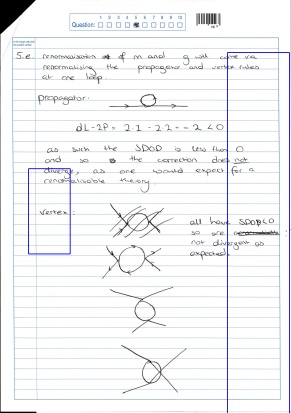 1 2 3 4 5 6 7 8 9 10
Question:
5.e. renormalisation of m and g will come via
renormalising the propagator and vertex rules
at one loop.
propagator.
dL-2P = 2·1-2·2 = -2 < 0
as such the SDOD is less than 0
and so the correction does not
diverge, as one would expect for a
renormalisable theory.
vertex:
all have SDOD<0
so are
not divergent as
expected.